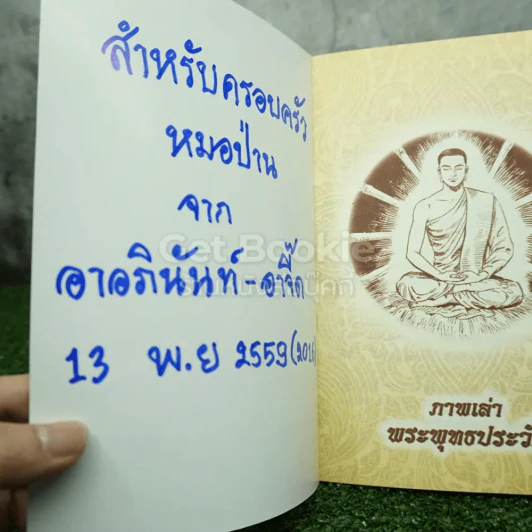 สำหรับครอบครัว
หมอป่าน
จาก
อาอภินันท์ - อาจี๊ด
13 พ.ย 2559 (2016
Get Bookie
ภาพเล่า
พระพุทธประวั